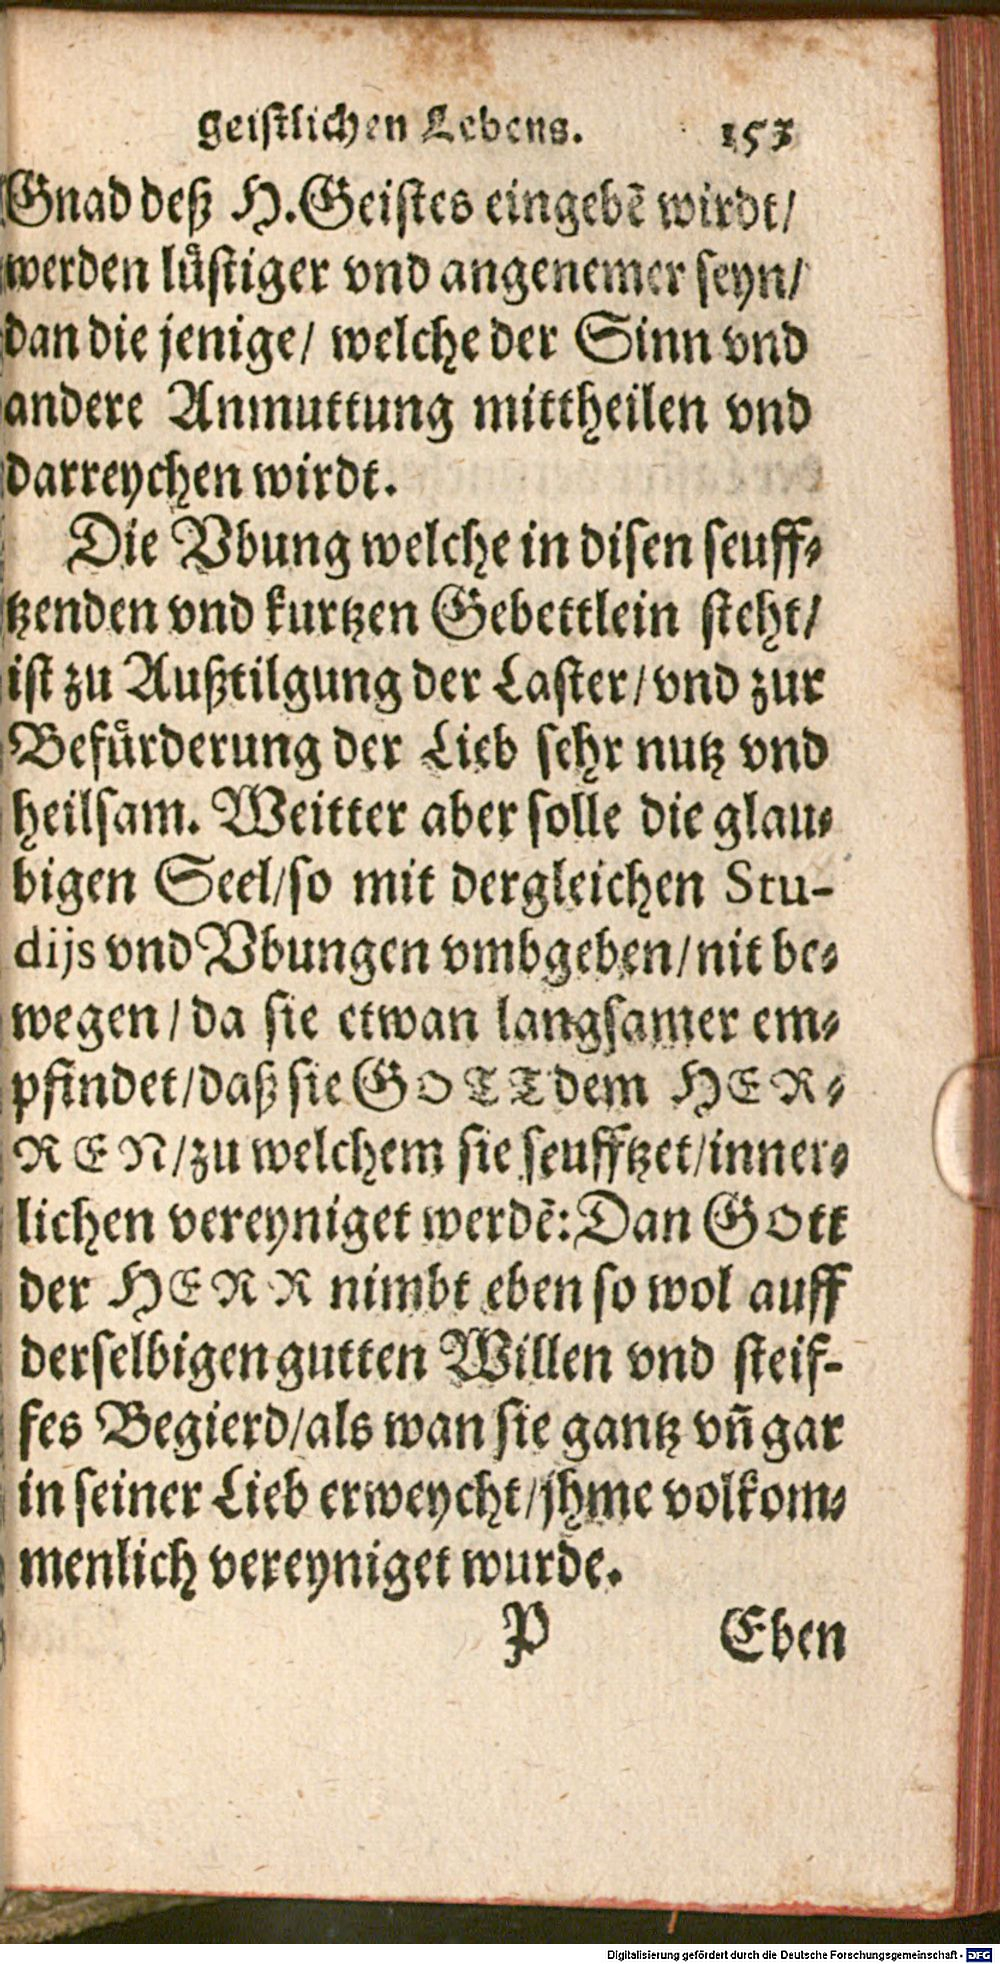 geistlichen Lebens. 153
Gnad deß H. Geistes eingebẽ wirdt/
werden lüstiger vnd angenemer seyn/
dan die jenige/ welche der Sinn vnd
andere Anmuttung mittheilen vnd
darreychen wirdt.
Die Vbung welche in disen seuff-
tzenden vnd kurtzen Gebettlein steht/
ist zu Außtilgung der Laster/ vnd zur
Befürderung der Lieb sehr nutz vnd
heilsam. Weitter aber solle die glau-
bigen Seel/ so mit dergleichen Stu-
dijs vnd Vbungen vmbgeben/ nit be-
wegen/ da sie etwan langsamer em-
pfindet/ daß sie GOTT dem HER-
REN/ zu welchem sie seufftzet/ inner-
lichen vereyniget werdẽ: Dan Gott
der HERR nimbt eben so wol auff
derselbigen gutten Willen vnd steif-
fes Begierd/ als wan sie gantz vñ gar
in seiner Lieb erweycht/ jhme volkom-
menlich vereyniget wurde.
P Eben
Digitalisierung gefördert durch die Deutsche Forschungsgemeinschaft - DFG